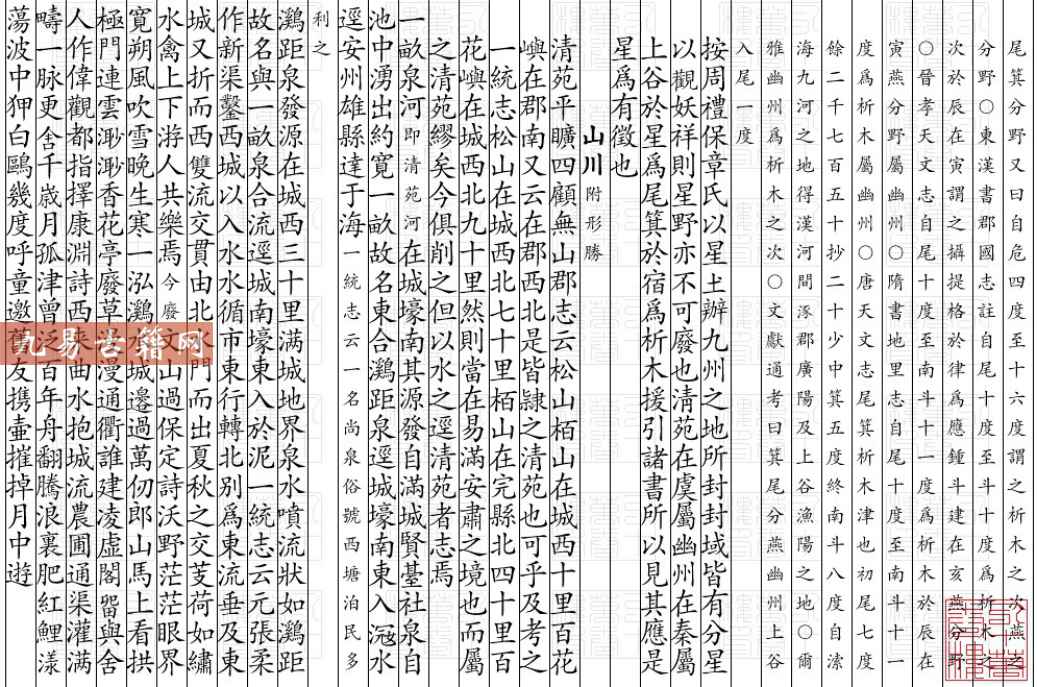 尾箕分野又曰自危四度至十六度謂之析木之次燕之
分野○東漢書郡國志註自尾十度至斗十度爲析木之
次於辰在寅謂之攝提格於律爲應鍾斗建在亥燕分野
○晉孝天文志自尾十度至南斗十一度爲析木於辰在
寅燕分野屬幽州○隋書地里志自尾十度至南斗十一
度爲析木屬幽州○唐天文志尾箕析木津也初尾七度
餘二千七百五十抄二十少中箕五度終南斗八度自渿
海九河之地得漢河間涿郡廣陽及上谷漁陽之地○爾
雅幽州爲析木之次○文獻通考曰箕尾分燕幽州上谷
入尾一度
按周禮保章氏以星土辦九州之地所封封域皆有分星
以觀妖祥則星野亦不可廢也清苑在虞屬幽州在秦屬
上谷於星爲尾箕於宿爲析木援引諸書所以見其應是
星爲有徵也
山川附形勝
清苑平曠四顧無山郡志云松山栢山在城西十里百花
嶼在郡南又云在郡西北是皆隷之清苑也可乎及考之
一統志松山在城西北七十里栢山在完縣北四十里百
花嶼在城西北九十里然則當在易滿安肅之境也而屬
之清苑繆矣今俱削之但以水之逕清苑者志焉
一畝泉河即清苑河在城壕南其源發自滿城賢臺社泉自
池中湧出約寛一畝故名東合鷄距泉逕城壕南東入㓂水
逕安州雄縣達于海一統志云一名尚泉俗號西塘泊民多
利之
鷄距泉發源在城西三十里满城地界泉水噴流狀如鷄距
故名與一畝泉合流逕城南壕東入於泥一統志云元張柔
作新渠鑿西城以入水水循市東行轉北别爲東流垂及東
城又折而西雙流交貫由北水門而出夏秋之交芰荷如繡
水禽上下游人共樂焉今廢文山過保定詩沃野茫茫眼界
寛朔風吹雪晚生寒一泓鷄水城邊過萬仞郎山馬上看拱
極門連雲渺渺香花亭廢草漫漫通衢誰建凌虛閣畱與舍
人作偉觀都指擇康淵詩西来曲水抱城流農圃通渠灌满
疇一脉更舍千歲月孤津曾泛百年舟翻騰浪裏肥紅鯉漾
蕩波中狎白鷗幾度呼童邀舊友携壷摧掉月中遊
九易古籍网